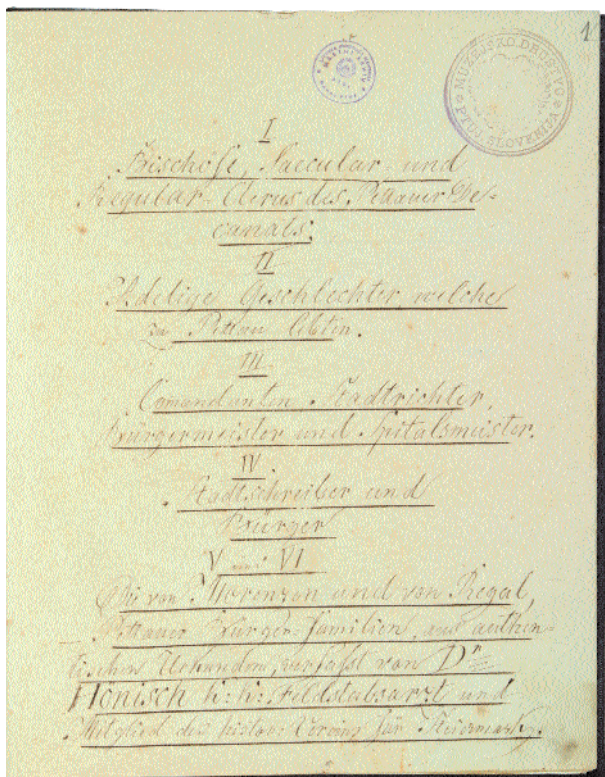 1
MUZEJSKO DRUŠTVO
PTUJ SLOVENIJA
I
Bischöfe, Saecular- und
Regular-Clerus des Pettauer De-
canats.
II
Adelige Geschlechter, welche
in Pettau lebten.
III
Comandanten, Stadtrichter,
Bürgermeister und Spitalsmeister.
IV.
Stadtschreiber und
Bürger
V und VI
Die von Morenzon und von Regal,
Pettauer Bürger-Familien, aus authen-
tischen Urkunden, verfasst von Dr
Hönisch k: k: Feldstabsarzt und
Mitglied des histor: Vereins für Steiermark.